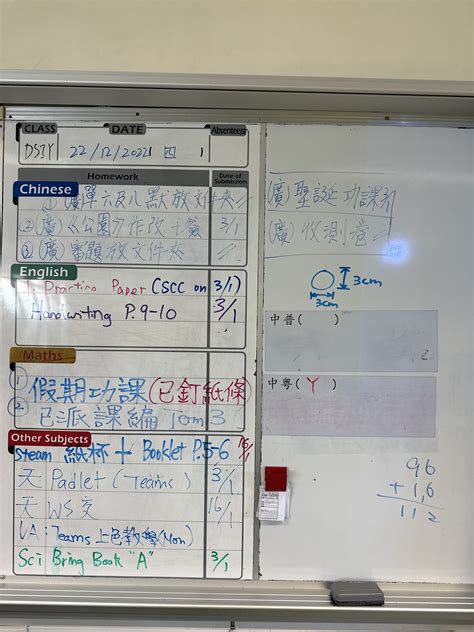 CLASS DATE Absentees
DS1Y 22/12/2022 四 1
Homework Date of Submission
Chinese
① (廣)單六及八默放文件夾
(2) (廣)《公園》作改+簽 3/1
③ (廣)審題放文件夾
English
1. Practice Paper (SCC on 3/1)
Handwriting P.9-10 3/1
Maths
① 假期功課(已釘紙條)
② 已派課編 Term 3
Other Subjects
Steam 紙杯 + Booklet P.5-6 16/1
天 Padlet (Teams) 3/1
天 WS交 16/1
VA: Teams 上色教學(Mon)
Sci Bring Book "A" 3/1
(廣)聖誕功課
(廣)收測卷
3cm
3cm
中普( )
2
中粵( Y )
96
+ 1,6
11 2